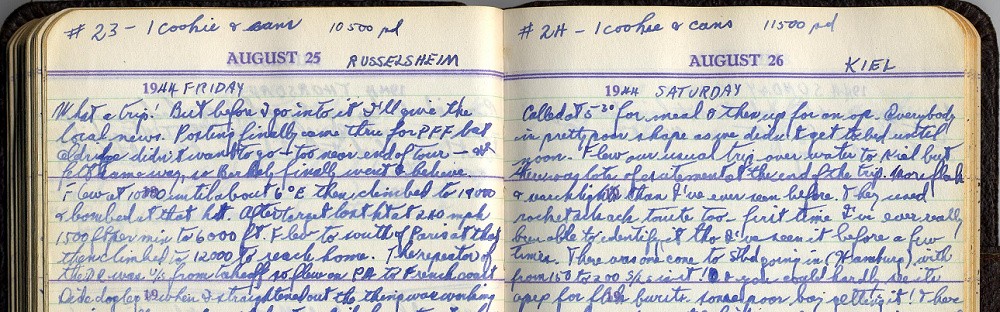 #23 - 1 cookie & cans 10500 pd
AUGUST 25 RUSSELSHEIM
1944 FRIDAY
What a trip! But before I go into it I'll give the
local news. Posting finally came thru for PFF but
didn't want to go - too near end of tour -
felt same way, so Berkely finally went I believe.
Flew at 10000 until about 6°E then climbed to 19000
& bombed at that ht. After target lost ht at 240 mph
1500 ft per min to 6000 ft. Flew to south of Paris at that
then climbed to 12000 to reach home. The repeater of
the DR was u/s from takeoff so flew on P4 to French coast
Did dog leg when I straightened out the thing was working
#24 - 1 cookie & cans 11500 pd
AUGUST 26 KIEL
1944 SATURDAY
Called at 5:30 for meal & then up for an op. Everybody
in pretty poor shape as we didn't get to bed until
noon. Flew our usual trip over water to Kiel but
there was lots of excitement at the end of the trip. More flak
& searchlights than I've ever seen before. They used
rocket attack tonite too - first time I've ever really
been able to identify it tho I've seen it before a few
times. There was one cone to Stbd going in (Hamburg) with
from 150 to 200 S/Ls in it! & you could hardly see its
apex for flak bursts some poor boy getting it! I have